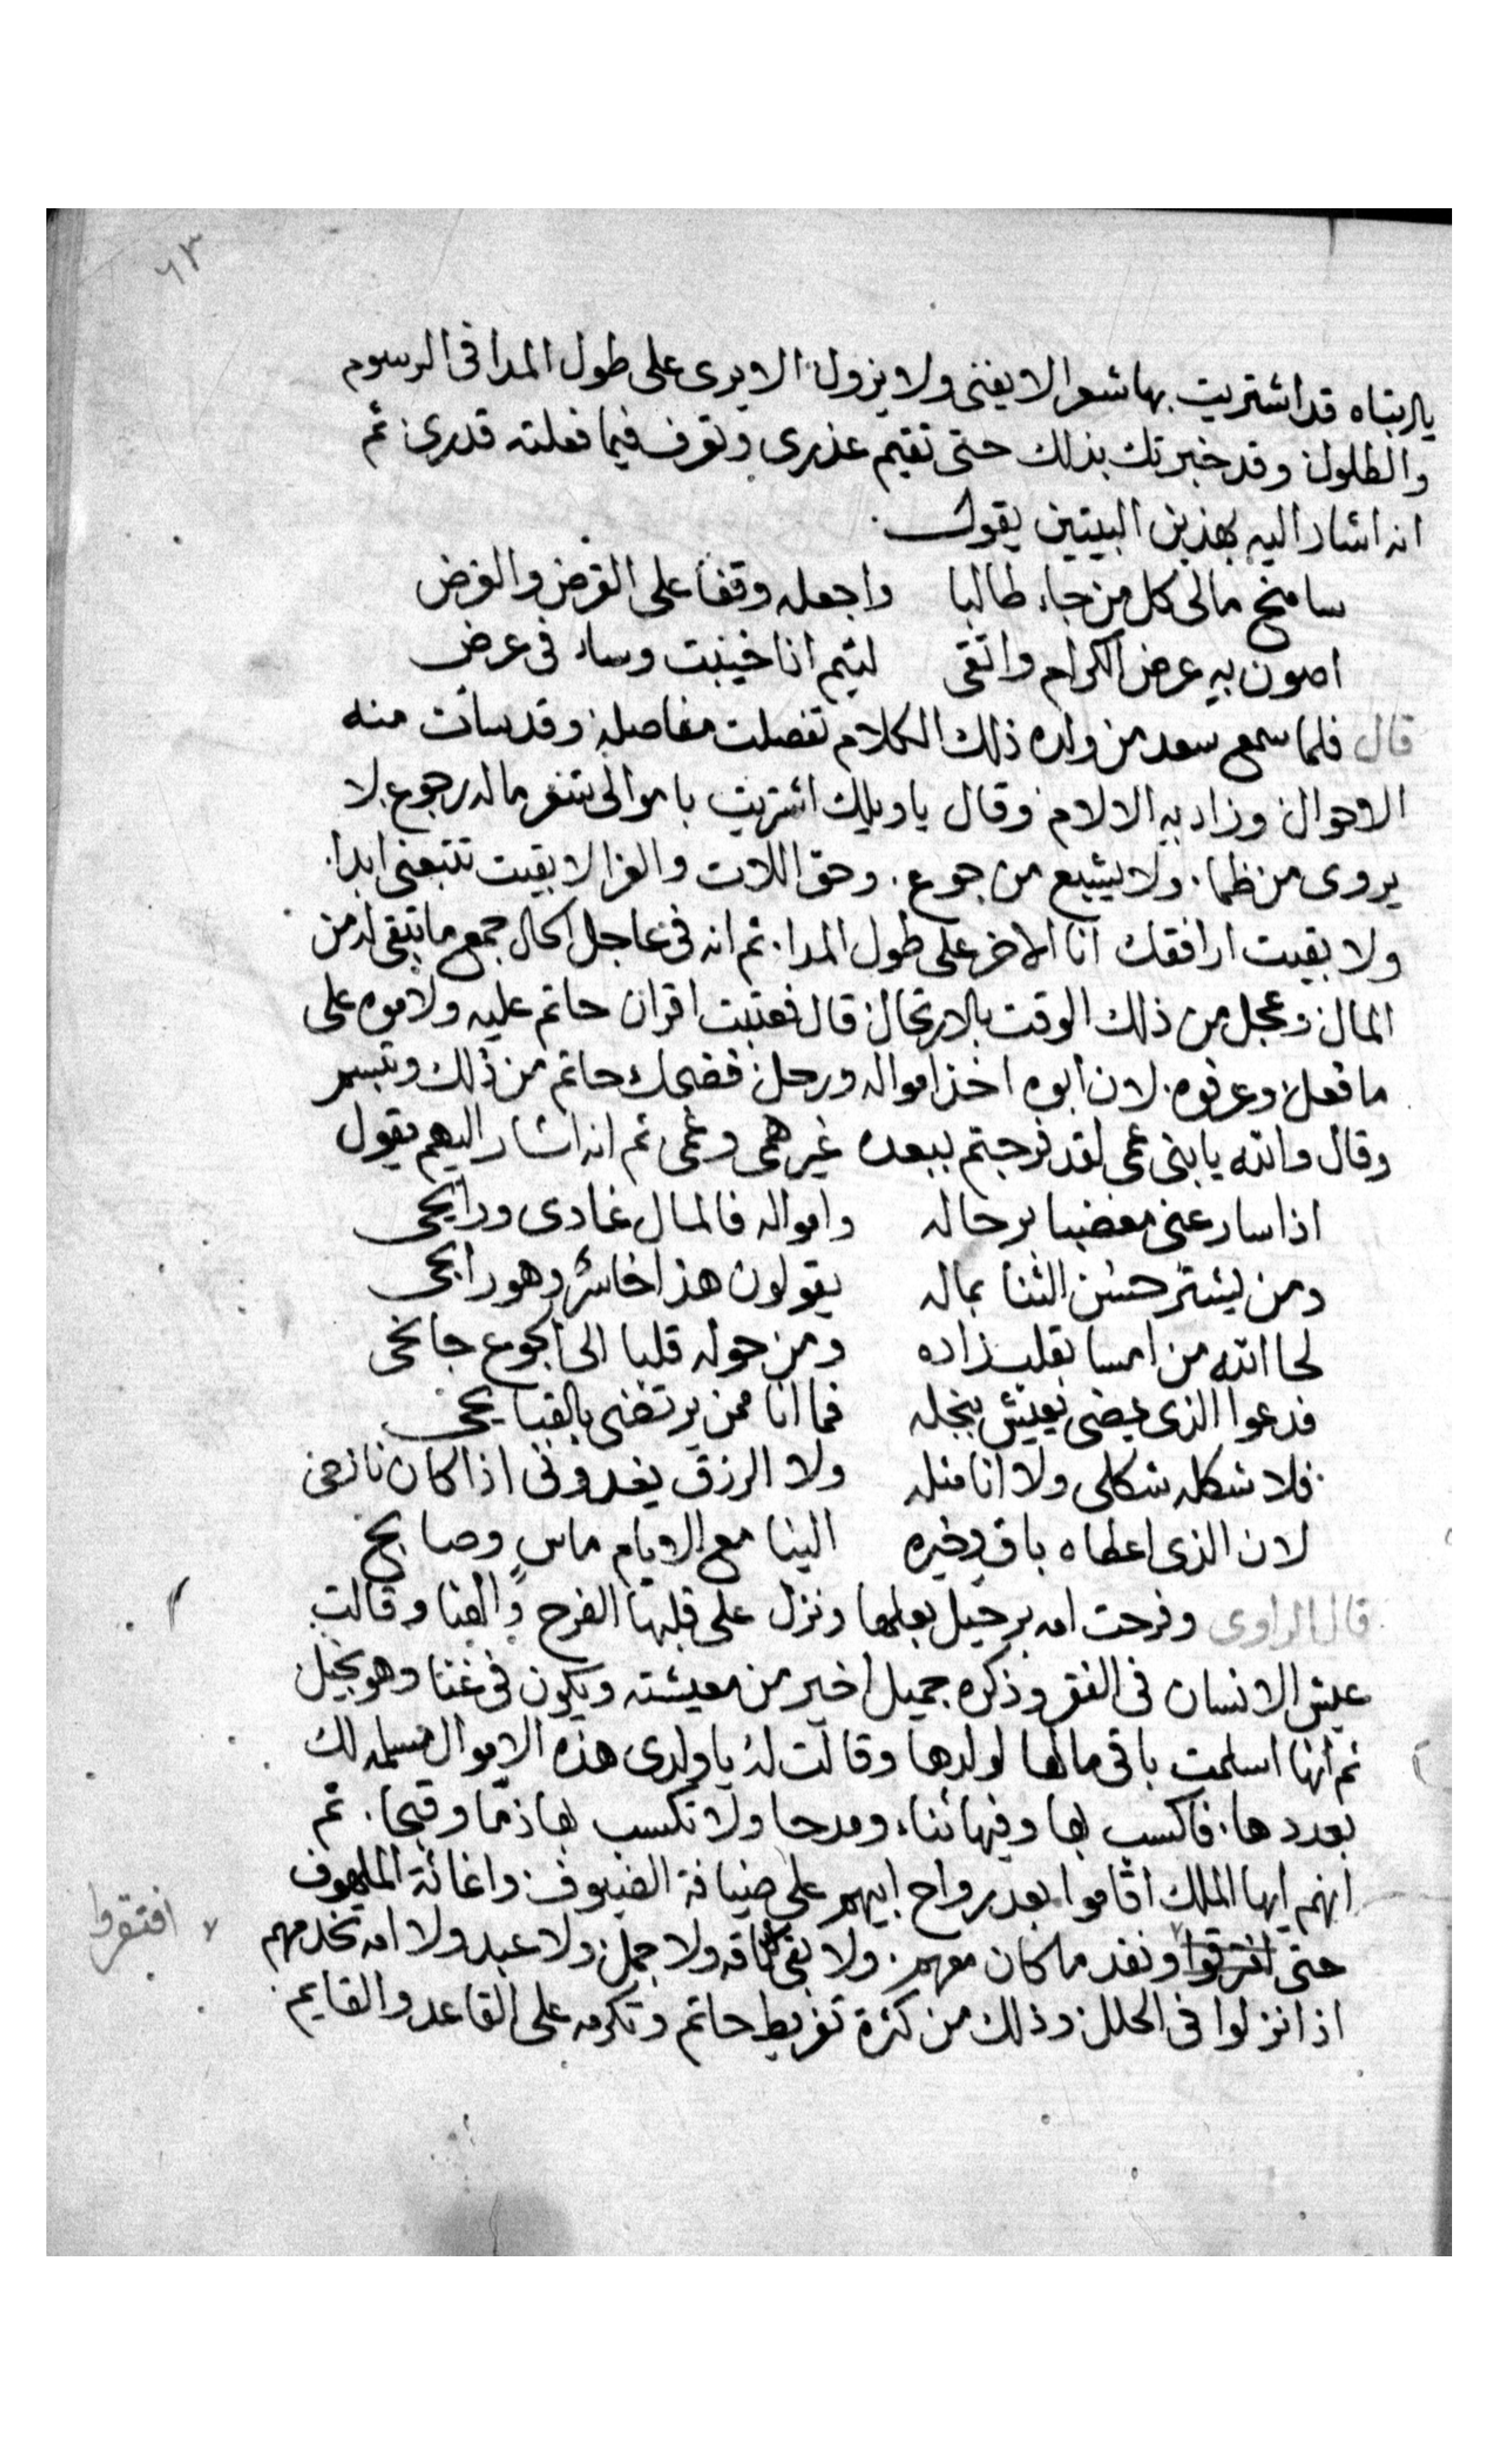 ٦٣
يا ابتاه قد اشتريت بها شعرا لا يفنى ولا يزول الا يرى على طول المدا فى الرسوم
والطلول وقد خبرتك بذلك حتى تقيم عذرى وتعرف فيما فعلته قدرى ثم
انه اشار اليه بهذين البيتين يقول
سامنح مالى كل من جاء طالبا واجعله وقفا على القرض والفرض
اصون به عرض الكرام واتقى لئيم اناخيبت وساء فى عرض
قال فلما سمع سعد من ولده ذلك الكلام تفصلت مفاصله وقد سائت منه
الاحوال وزاد به الالام وقال يا ويلك اشتريت باموالى شعر ما له رجوع لا
يروى من ظما. ولا يشبع من جوع. وحق اللات والعزا لا بقيت تتبعنى ابدا.
ولا بقيت ارافقك انا الاخر على طول المدا. ثم انه فى عاجل الحال جمع ما تبقى له من
المال وعجل من ذلك الوقت بالارتحال قال فعتبت اقران حاتم عليه ولاموه على
ما فعل وعرفوه. لان ابوه اخذ امواله ورحل فضحك حاتم من ذلك وتبسم
وقال والله يا بنى عمى لقد فرجتم ببعده غير همى وغمى ثم انه اشار اليهم يقول
اذا سار عنى مغضبا برحاله وامواله فالمال غادى ورايحى
ومن يشتر حسن الثنا بماله يقولون هذا خاسر وهو رابحى
لحا الله من امسا بقلب زاده ومن حوله قلبا الى الجوع جانحى
فدعوا الذى يمضى يعيش ببخله فما انا ممن يرتضى بالقبايحى
فلا شكله شكلى ولا انا مثله ولا الرزق يغدونى اذا كان نازحى
لان الذى اعطاه باق وخيره الينا مع الايام ماس وصابح
قال الراوى وفرحت امه برحيل بعلها ونزل على قلبها الفرح والهنا وقالت
عيش الانسان فى الفقر وذكره جميل اخير من معيشته ويكون فى غنا وهو بخيل
ثم انها اسلمت باقى مالها لولدها وقالت له يا ولدى هذه الاموال مسلمه لك
بعددها. فاكسب بها وفيها ثناء ومدحا ولا تكسب بها ذما وقبحا. ثم
انهم ايها الملك اقاموا بعد رواح ابيهم على ضيافة الضيوف واغاثة الملهوف
حتى افترقوا ونفد ما كان معهم. ولا بقى لا ناقه ولا جمل ولا عبد ولا امه تخدمهم
افتقروا
اذا نزلوا فى الحلل وذلك من كثرة تفريط حاتم وتكرمه على القاعد والقايم